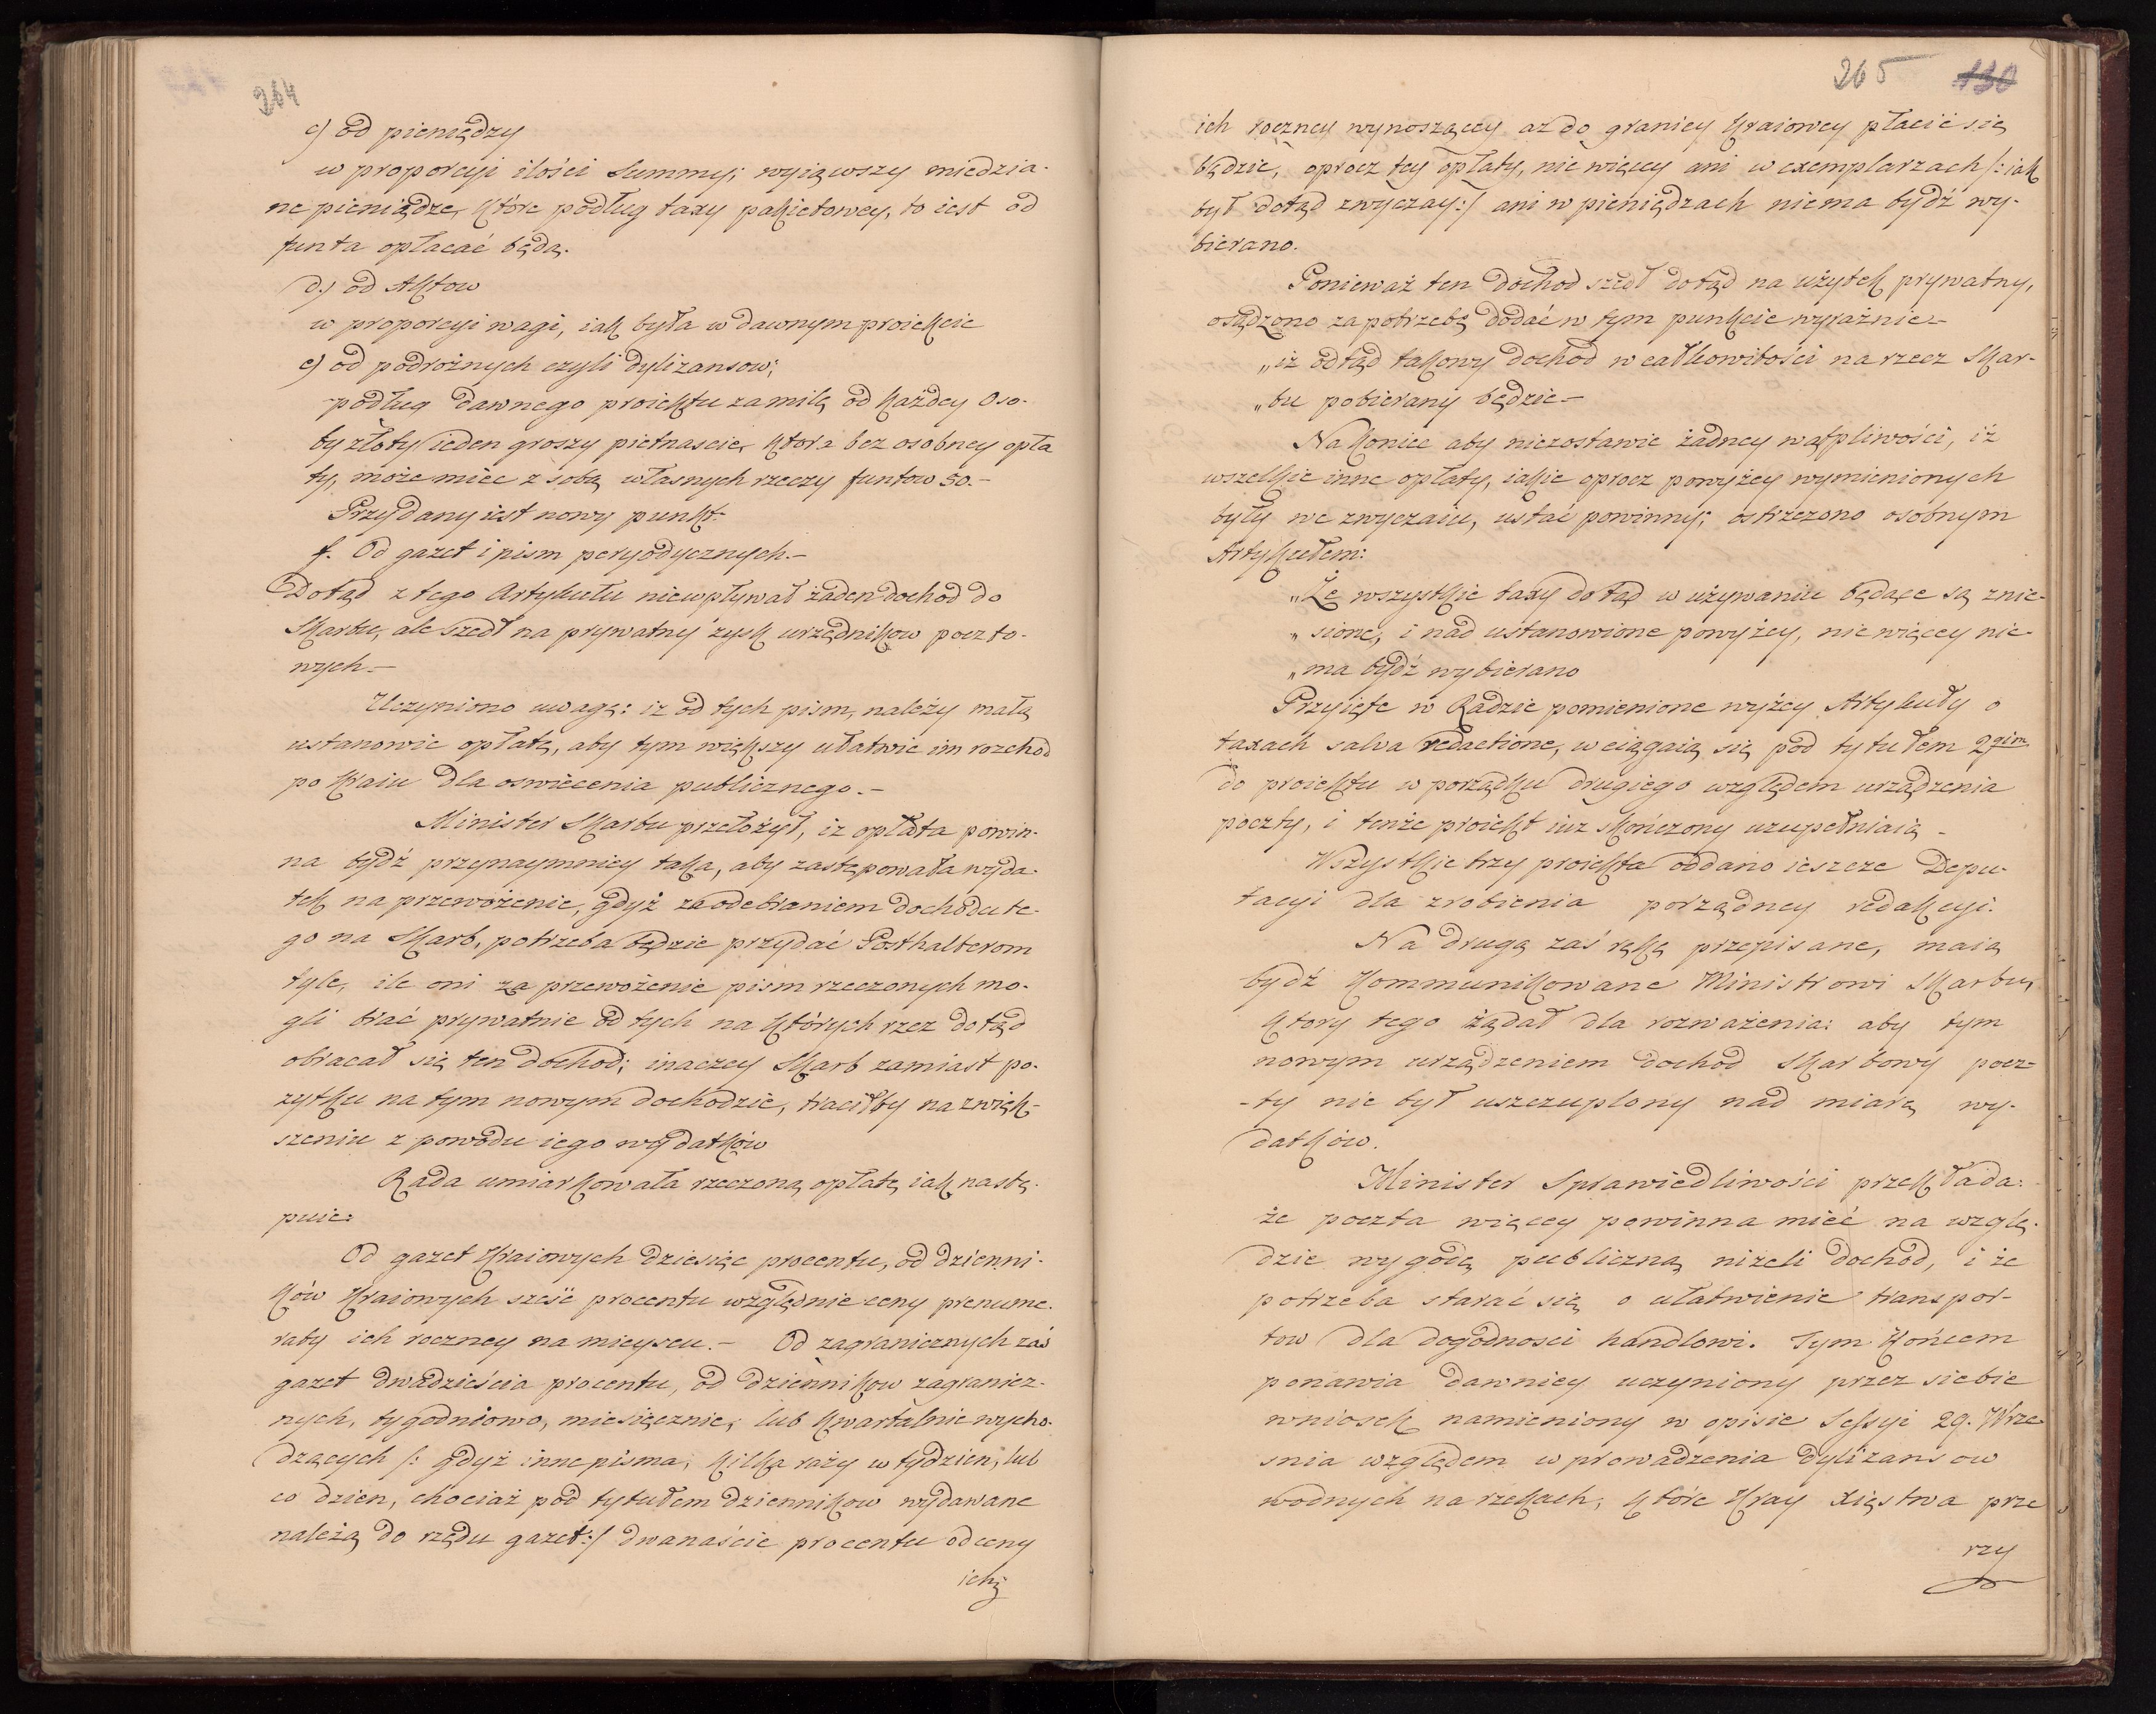 264
c) od pieniędzy
w proporcyi ilości Summy; wyiąwszy miedzia-
ne pieniądze, które podług taxy pakietowey, to iest od
funta opłacać będą.
d.) od Aktow
w proporcyi wagi, iak była w dawnym proiekcie
e) od podrożnych czyli dyliżansow;
podług dawnego proiektu za milę od każdey Oso-
by złoty ieden groszy piętnascie, ktora bez osobney opła
ty, może miec z sobą własnych rzeczy funtow 50.-
Przydany iest nowy punkt.
f. Od gazet i pism peryodycznych.-
Dotąd z tego Artykułu niewpływał żaden dochod do
Skarbu, ale szedł na prywatny zysk urzędnikow poczto-
wych.-
Uczyniono uwagę: iż od tych pism, należy małą
ustanowic opłatę, aby tym większy ułatwic im rozchod
po kraiu dla oswiecenia publicznego.-
Minister Skarbu przełożył, iz opłata powin-
na bydź przynaymniey taka, aby zastępowała wyda-
tek na przewożenie, gdyż za odebraniem dochodu te-
go na Skarb, potrzeba będzie przydać Posthalterom
tyle, ile oni za przewożenie pism rzeczonych mo-
gli brać prywatnie od tych na których rzez dotąd
obracał się ten dochod; inaczey Skarb zamiast po-
żytku na tym nowym dochodzie, traciłby na zwięk-
szeniu z powodu iego wydatków
Rada umiarkowała rzeczoną opłatę iak nastę-
puie:
Od gazet kraiowych dziesięc procentu, od dzienni-
ków kraiowych sześć procentu względnie ceny prenume-
raty ich roczney na mieyscu.- Od zagranicznych zaś
gazet dwadzieścia procentu, od dziennikow zagranicz-
nych, tygodniowo, miesięcznie, lub kwartalnie wycho-
dzących /: gdyż inne pisma, kilka razy w tydzien, lub
co dzien, chociaż pod tytułem dziennikow wydawane
należą do rzędu gazet:/ dwanaście procentu od ceny
ich
265 130
ich roczney wynoszącey aż do granicy kraiowey płacić się
będzie, oprocz tey opłaty, nic więcey ani w exemplarzach /: iak
był dotąd zwyczay:/ ani w pieniędzach niema bydź wy-
bierano.
Ponieważ ten dochod szedł dotąd na użytek prywatny,
osądzono za potrzebę dodać w tym punkcie wyraźnie-
„iż odtąd takowy dochod w całkowitości na rzecz Skar-
„bu pobierany będzie-
Na koniec aby niezostawic żadney wątpliwości, iż
wszelkie inne opłaty, iakie oprocz powyżey wymienionych
były we zwyczaiu, ustać powinny; ostrzeżono osobnym
Artykułem:
„Że wszystkie taxy dotąd w używaniu będące są znie-
„sione, i nad ustanowione powyżey, nic więcey nie-
„ma bydź wybierano
Przyięte w Radzie pomienione wyżey Artykuły o
taxach salva redactione, wciągaią się pod tytułem 2gim
do proiektu w porządku drugiego względem urządzenia
poczty, i tenże proiekt iuż skończony uzupełniaią -
Wszystkie trzy proiekta oddano ieszcze Depu-
tacyi dla zrobienia porządney redakcyi.
Na drugą zaś rękę przepisane, maią
bydź kommunikowane Ministrowi Skarbu,
ktory tego żądał dla rozważenia: aby tym
nowym urządzeniem dochod Skarbowy pocz-
-ty nie był uszczuplony nad miarę wy-
datków.
Minister Sprawiedliwości przekłada:
że poczta więcey powinna mieć na wzglę-
dzie wygodę publiczną niżeli dochod, i że
potrzeba starać się o ułatwienie transpor-
tow dla dogodnosci handlowi. Tym końcem
ponawia dawniey uczyniony przez siebie
wniosek namieniony w opisie Sessyi 29. Wrze-
snia względem wprowadzenia dyliżansow
wodnych na rzekach, które kray xięstwa prze
rzy